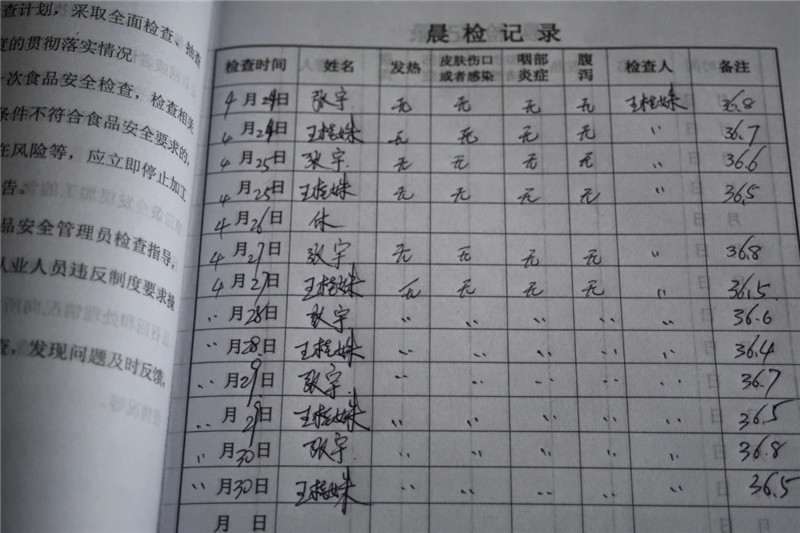 查计划，采取全面检查、抽查
度的贯彻落实情况
一次食品安全检查，检查相关
条件不符合食品安全要求的，
在风险等，应立即停止加工
告。
品安全管理员检查指导，
从业人员违反制度要求操
查，发现问题及时反馈，
晨检记录
检查时间 姓名 发热 皮肤伤口或者感染 咽部炎症 腹泻 检查人 备注
4月24日 张宇 无 无 无 无 36.8
4月24日 无 无 无 无 〃 36.7
4月25日 张宇 无 无 无 无 〃 36.6
4月25日 无 无 无 无 〃 36.5
4月26日 休
4月27日 张宇 无 无 无 无 〃 36.8
4月27日 无 无 无 无 〃 36.5
〃月28日 张宇 〃 〃 〃 〃 〃 36.6
〃月28日 〃 〃 〃 〃 〃 36.4
〃月29日 张宇 〃 〃 〃 〃 〃 36.7
〃月29日 〃 〃 〃 〃 〃 36.5
〃月30日 张宇 〃 〃 〃 〃 〃 36.8
〃月30日 〃 〃 〃 〃 〃 36.5
月 日